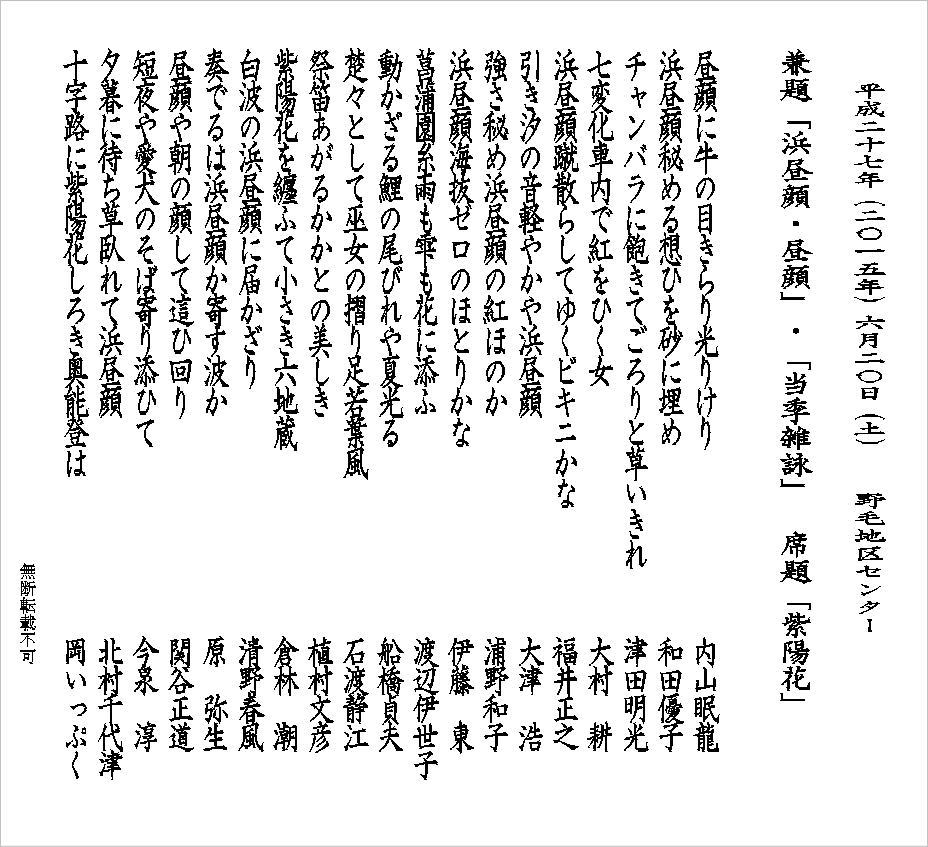 平成二十七年（二〇一五年）六月二〇日（土）　野毛地区センター
兼題「浜昼顔・昼顔」・「当季雑詠」　席題「紫陽花」
昼顔に牛の目きらり光りけり　内山眠龍
浜昼顔秘める想ひを砂に埋め　和田優子
チャンバラに飽きてごろりと草いきれ　津田明光
七変化車内で紅をひく女　大村　耕
浜昼顔蹴散らしてゆくビキニかな　福井正之
引き汐の音軽やかや浜昼顔　大津　浩
強さ秘め浜昼顔の紅ほのか　浦野和子
浜昼顔海抜ゼロのほとりかな　伊藤　東
菖蒲園糸雨も雫も花に添ふ　渡辺伊世子
動かざる鯉の尾びれや夏光る　船橋貞夫
楚々として巫女の摺り足若葉風　石渡静江
祭笛あがるかかとの美しき　植村文彦
紫陽花を纏ふて小さき六地蔵　倉林　潮
白波の浜昼顔に届かざり　清野春風
奏でるは浜昼顔か寄す波か　原　弥生
昼顔や朝の顔して這ひ回り　関谷正道
短夜や愛犬のそば寄り添ひて　今泉　淳
夕暮に待ち草臥れて浜昼顔　北村千代津
十字路に紫陽花しろき奥能登は　岡いっぷく
無断転載不可